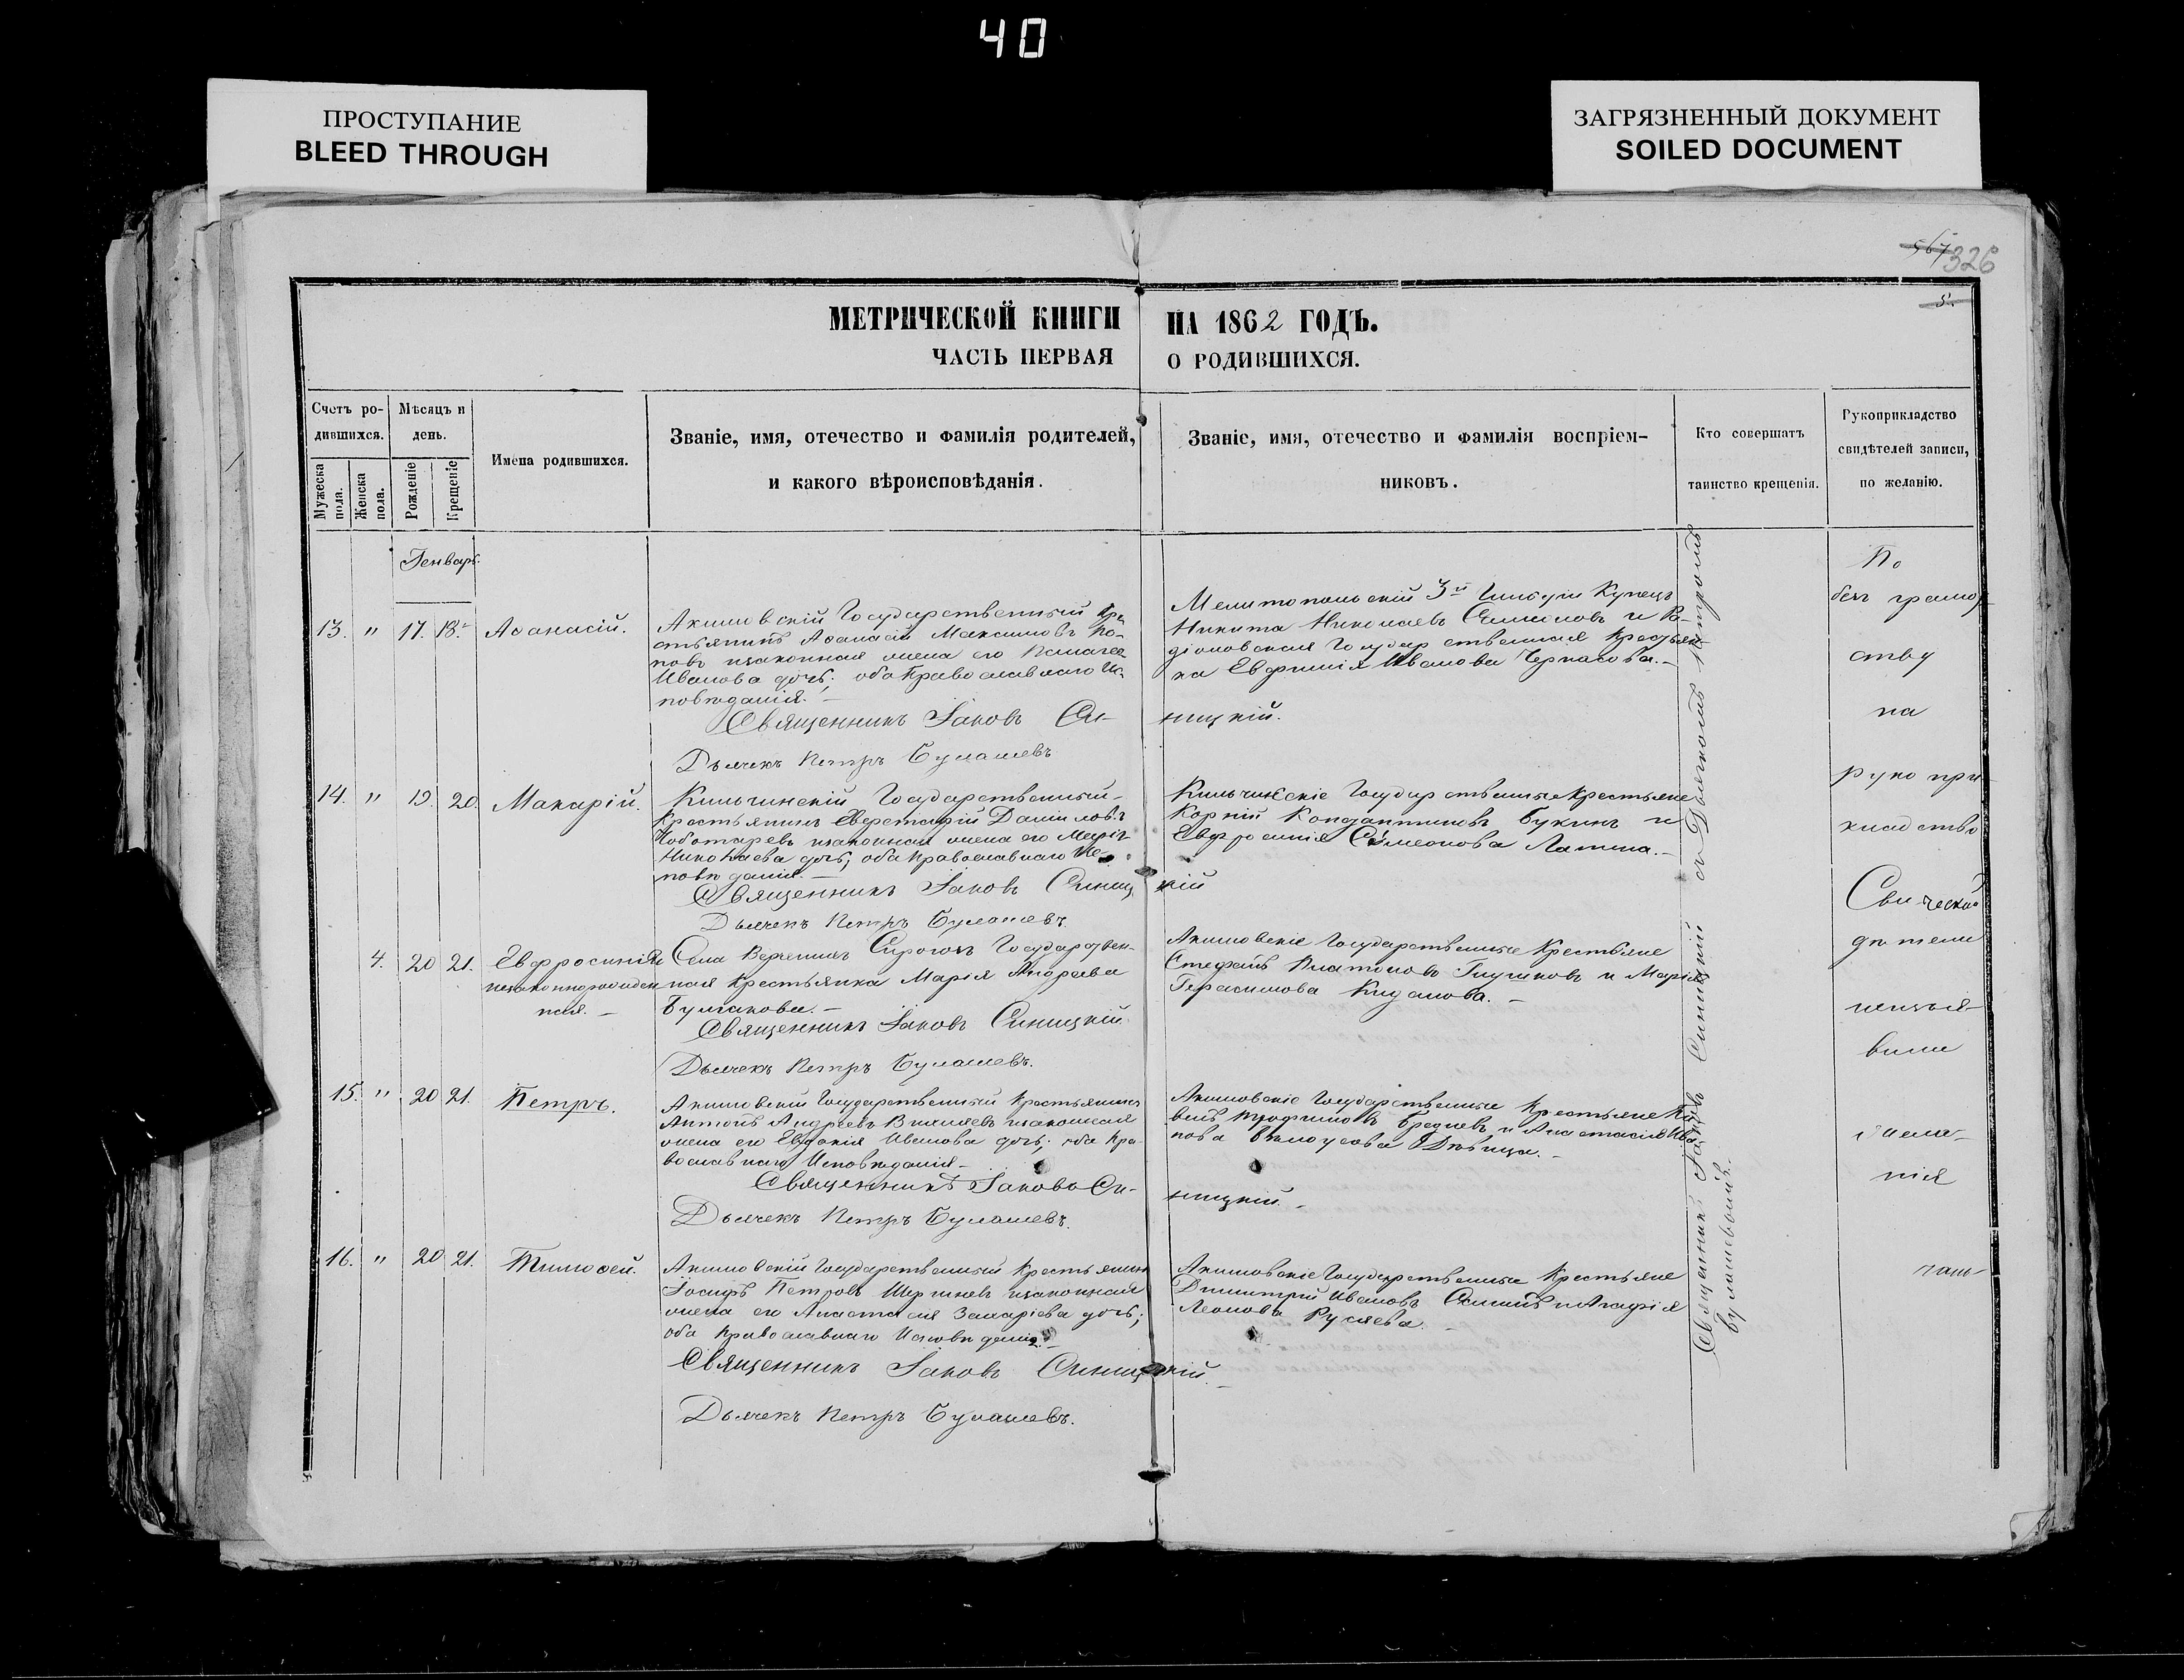 40
ПРОСТУПАНИЕ
BLEED THROUGH
ЗАГРЯЗНЕННЫЙ ДОКУМЕНТ
SOILED DOCUMENT
567 326
5.
МЕТРИЧЕСКОЙ КНИГИ НА 1862 ГОДЪ.
ЧАСТЬ ПЕРВАЯ О РОДИВШИХСЯ.
Счетъ ро-
дившихся.
Мужеска пола.
Женска пола.
Мѣсяцъ и
день.
Рожденіе
Крещеніе
Имена родившихся.
Званіе, имя, отечество и фамилія родителей,
и какого вѣроисповѣданія.
Званіе, имя, отечество и фамилія воспріем-
никовъ.
Кто совершатъ
таинство крещенія.
Рукоприкладство
свидѣтелей записи,
по желанію.
Генварь.
13. " 17. 18. Аѳанасій.
Акимовскій Государственный Кре
стьянинъ Аѳанасій Максимовъ По-
повъ изаконная жена его
Иванова дочь; оба Православнаго Ис-
повѣданія.
Священникъ Іаковъ Си-
ницкій.
Дьячекъ Петръ Булашевъ
Мелитопольскій 3й Гильдіи Купецъ
Никита Николаевъ и Ра-
діоновская Государственная Крестьян-
ка Евфимія Иванова Черкасова.-
14. " 19. 20. Макарій.
Кильчинскій Государственный
Крестьянинъ Даніиловъ
Чоботаревъ изаконная жена его Марія
Николаева дочь; оба Православнаго Ис-
повѣданія.-
Священникъ Іаковъ Синицкій
Дьячекъ Петръ Булашевъ.
Кильчинскіе Государственные Крестьяне
Корній Константиновъ Букинъ и
Евфросинія Симеонова Лапина.-
4. 20 21. Евфросинія
незаконнорожден
ная.-
Села Верхнихъ Сирогозъ Государствен-
ная Крестьянка Марія Андреева
Булгакова.-
Священникъ Іаковъ Синицкій.
Дьячекъ Петръ Булашевъ.
Акимовскіе Государственные Крестьяне
Стефанъ Платоновъ Глушковъ и Марія
Герасимова
15. " 20 21. Петръ.
Акимовскій Государственный Крестьянинъ
Антонъ Андреевъ изаконная
жена его Евдокія Иванова дочь; оба Пра-
вославнаго Исповѣданія-
Священникъ Іаковъ Си-
ницкій.-
Дьячекъ Петръ Булашевъ.
Акимовскіе Государственные Крестьяне
Трофимовъ Бредневъ и Анастасія Ива
нова Бѣлоусова Дѣвица.-
16. " 20 21. Тимоѳей.
Акимовскій Государственный Крестьянинъ
Іосифъ Петровъ изаконная
жена его Анастасія Захаріева дочь;
оба Православнаго Исповѣданія.-
Священникъ Іаковъ Синицкій.-
Дьячекъ Петръ Булашевъ.
Акимовскіе Государственные Крестьяне
Димитрій Ивановъ и Агафія
Леонова Русяева.-
Священникъ Іаковъ Синицкій съ Дьячкомъ Петромъ
Булашевымъ.
По
без грамот
ству
на
рукопри-
кладство
Сви
дѣтели
неизъя-
вили
жела-
нія